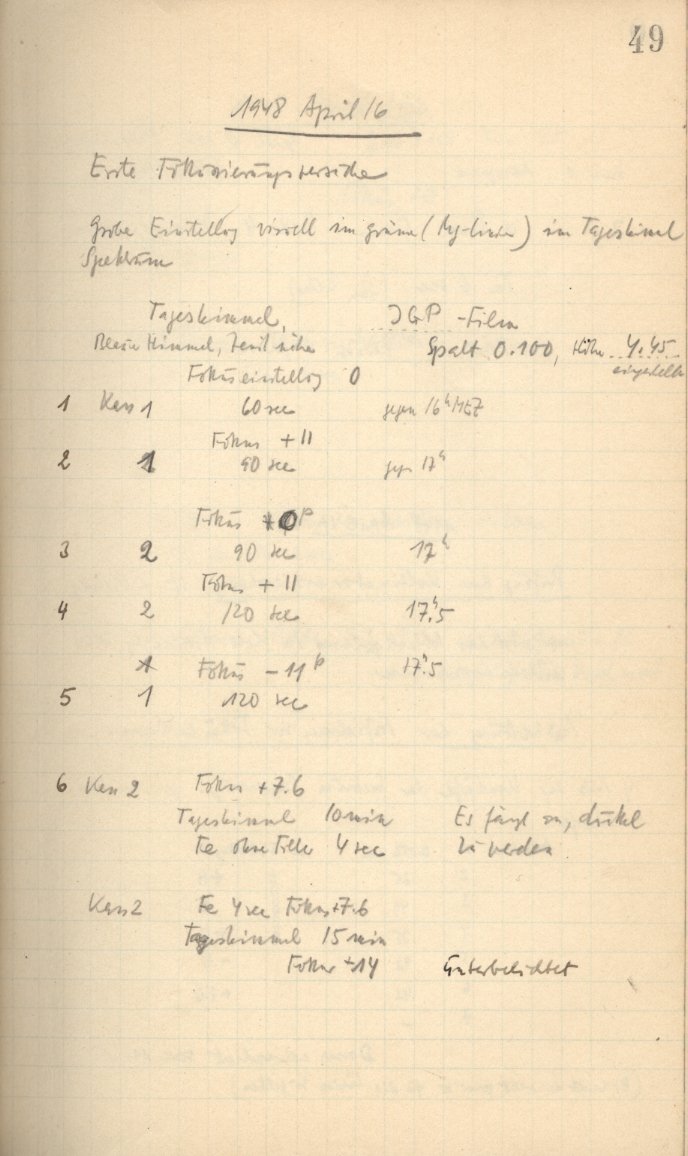 49
1948 April 16
Erste Fokussierungsversuche
Grobe Einstellung visuell im grünen (Mg-Linien) im Tageshimmel
Spektrum
Tageshimmel, JGP-Film
Blauer Himmel, Zenitnähe Spalt 0.100, Höhe 4.45
eingestellt
Fokuseinstellg 0
1 Kass 1 60 sec gegen 16h MEZ
Fokus + 11
2 1 90 sec gegen 17h
Fokus 0p
3 2 90 sec 17h
Fokus + 11
4 2 120 sec 17h.5
Fokus - 11p 17h.5
5 1 120 sec
6 Kass 2 Fokus +7.6
Tageshimmel 10 min Es fängt an, dunkel
Fe ohne Filter 4 sec zu werden
Kass 2 Fe 4 sec Fokus +7.6
Tageshimmel 15 min
Fokus +14 Unterbelichtet